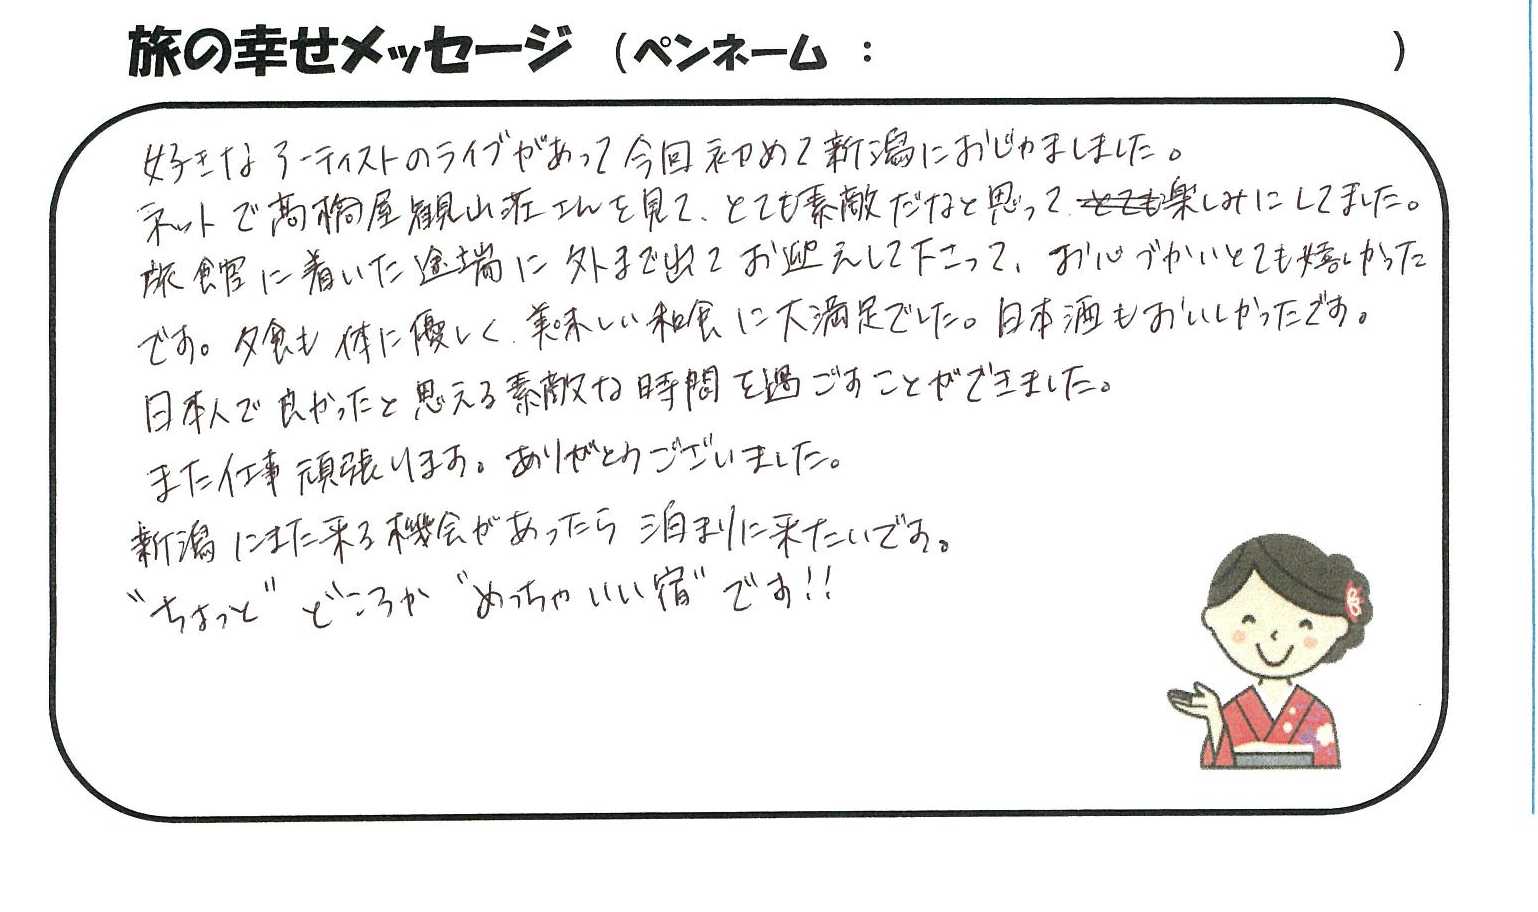 旅の幸せメッセージ (ペンネーム : )
好きなアーティストのライブがあって今回初めて新潟におじゃましました。
ネットで髙橋屋観山荘さんを見て、とても素敵だなと思って、とても楽しみにしてました。
旅館に着いた途端に外まで出てお迎えして下さって、お心づかいとても嬉しかった
です。夕食も体に優しく、美味しい和食に大満足でした。日本酒もおいしかったです。
日本人で良かったと思える素敵な時間を過ごすことができました。
また仕事頑張ります。ありがとうございました。
新潟にまた来る機会があったら泊まりに来たいです。
"ちょっと"どころか"めっちゃいい宿"です!!